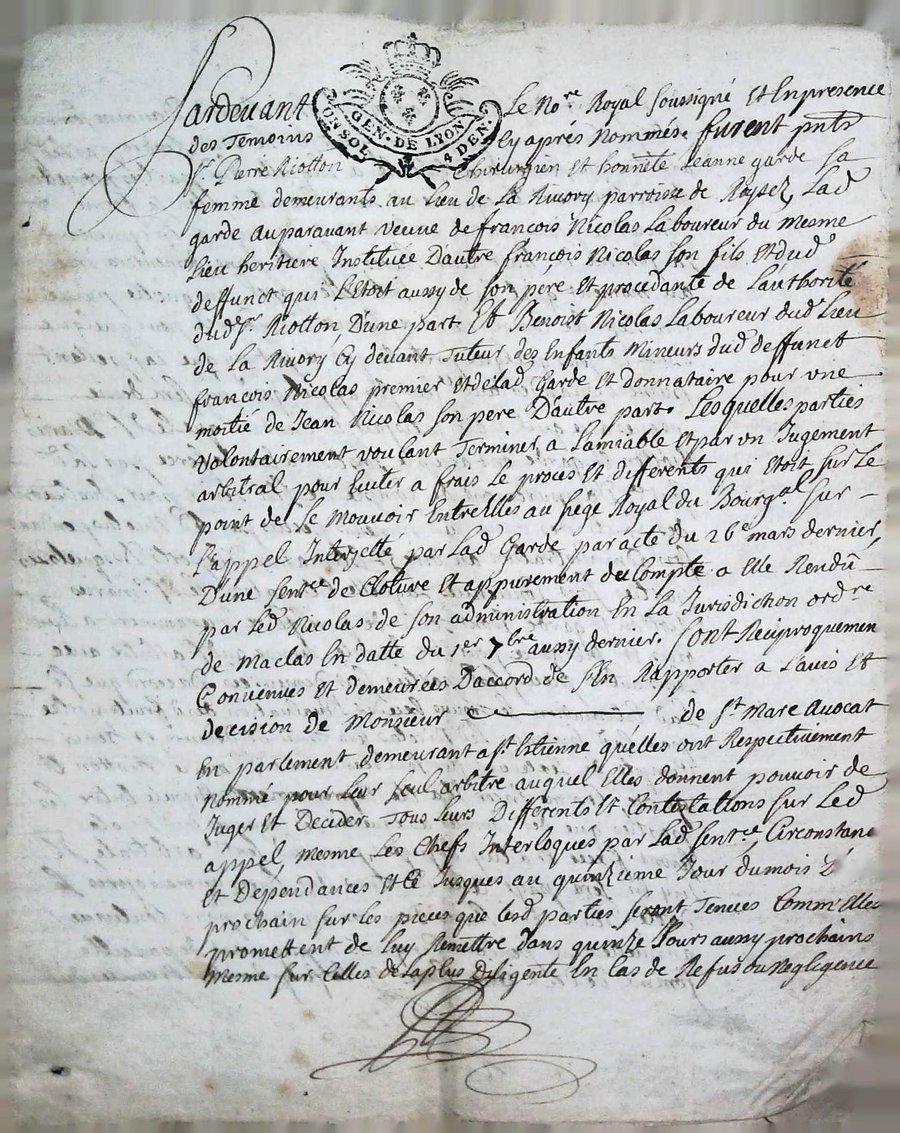 Pardevant Le No.re Royal soussigné Et En presence
GEN. DE LYON
UN SOL 4 DEN.
des Temoins Cy aprés nommés. furent pnts
Sr. Pierre Riotton Chirurgien Et honnéte Jeanne garde Sa
femme demeurants au Lieu de La Rivory parroisse de Lad
garde auparavant veuve de francois Nicolas Laboureur du mesme
Lieu heritiere Instituée D'autre françois Nicolas son fils Et dud
deffunct qui L'Etoit aussy de son pére Et procedante de L'authorité
dud Sr Riotton D'une part, Et Benoist Nicolas Laboureur dud Lieu
de La Rivory Cy devant Tuteur des Enfants Mineurs dud deffunct
françois Nicolas premier Et de Lad Garde Et donnataire pour une
moitié de Jean Nicolas son pere D'autre part. Lesquelles parties
volontairement voulant Terminer a Lamiable Et par un Jugement
arbitral pour Eviter a frais Le procés Et differents qui Etoit sur Le
point de Se mouvoir Entr'Elles au siége Royal du Bourgal sur
L'appel Interjetté par Lad Garde par acte du 26e mars dernier,
D'une Sentce de Cloture Et appurement du Compte a Elle Rendû
par Led Nicolas de son administration En La Jurisdiction ordre
de Maclas En datte du 1er 7bre aussy dernier. Sont Reciproquemen
Convenues Et demeurées D'accord de S'En Rapporter a L'avis Et
decision de Monsieur de St. Marc Avocat
En parlement demeurant a St Estienne qu'elles ont Respectivement
nommé pour Leur Seul arbitre auquel Elles donnent pouvoir de
Juger Et Decider Tous Leurs Differents Et Contestations sur Led
appel, mesme Les Chefs Interloqués par Lad Sentce, Circonstance
Et Dépendances Et Ce Jusques au quinzieme Jour du mois
prochain sur Les pieces que Lesd parties seront Tenues Comm'Elles
promettent de Luy Remettre dans quinze Jours aussy prochains
mesme sur Celles de La plus diligente En Cas de Refus ou Negligence